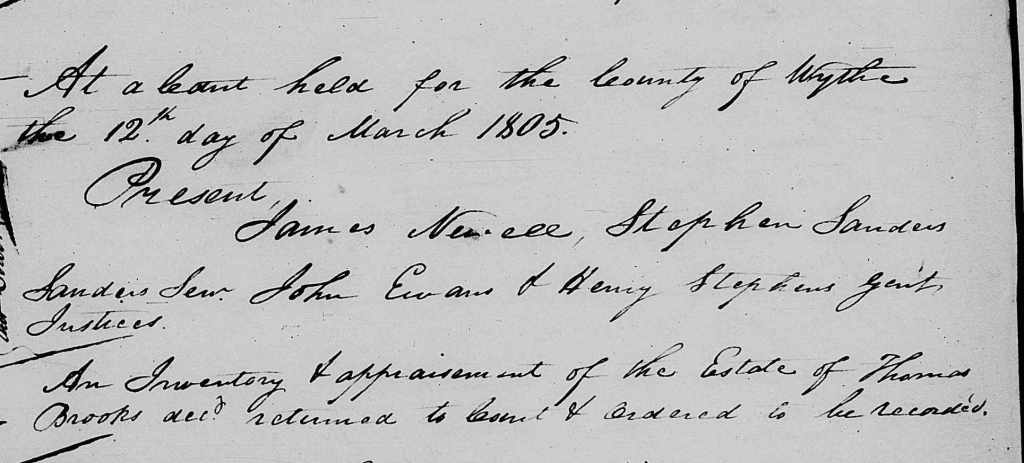 At a Court held for the County of Wythe
the 12th. day of March 1805.
Present,
James Newell, Stephen Sanders
Sanders Senr. John Evans & Henry Stephens Gent.
Justices.
An Inventory & appraisement of the Estate of Thomas
Brooks decd. returned to Court & Ordered to be recorded.